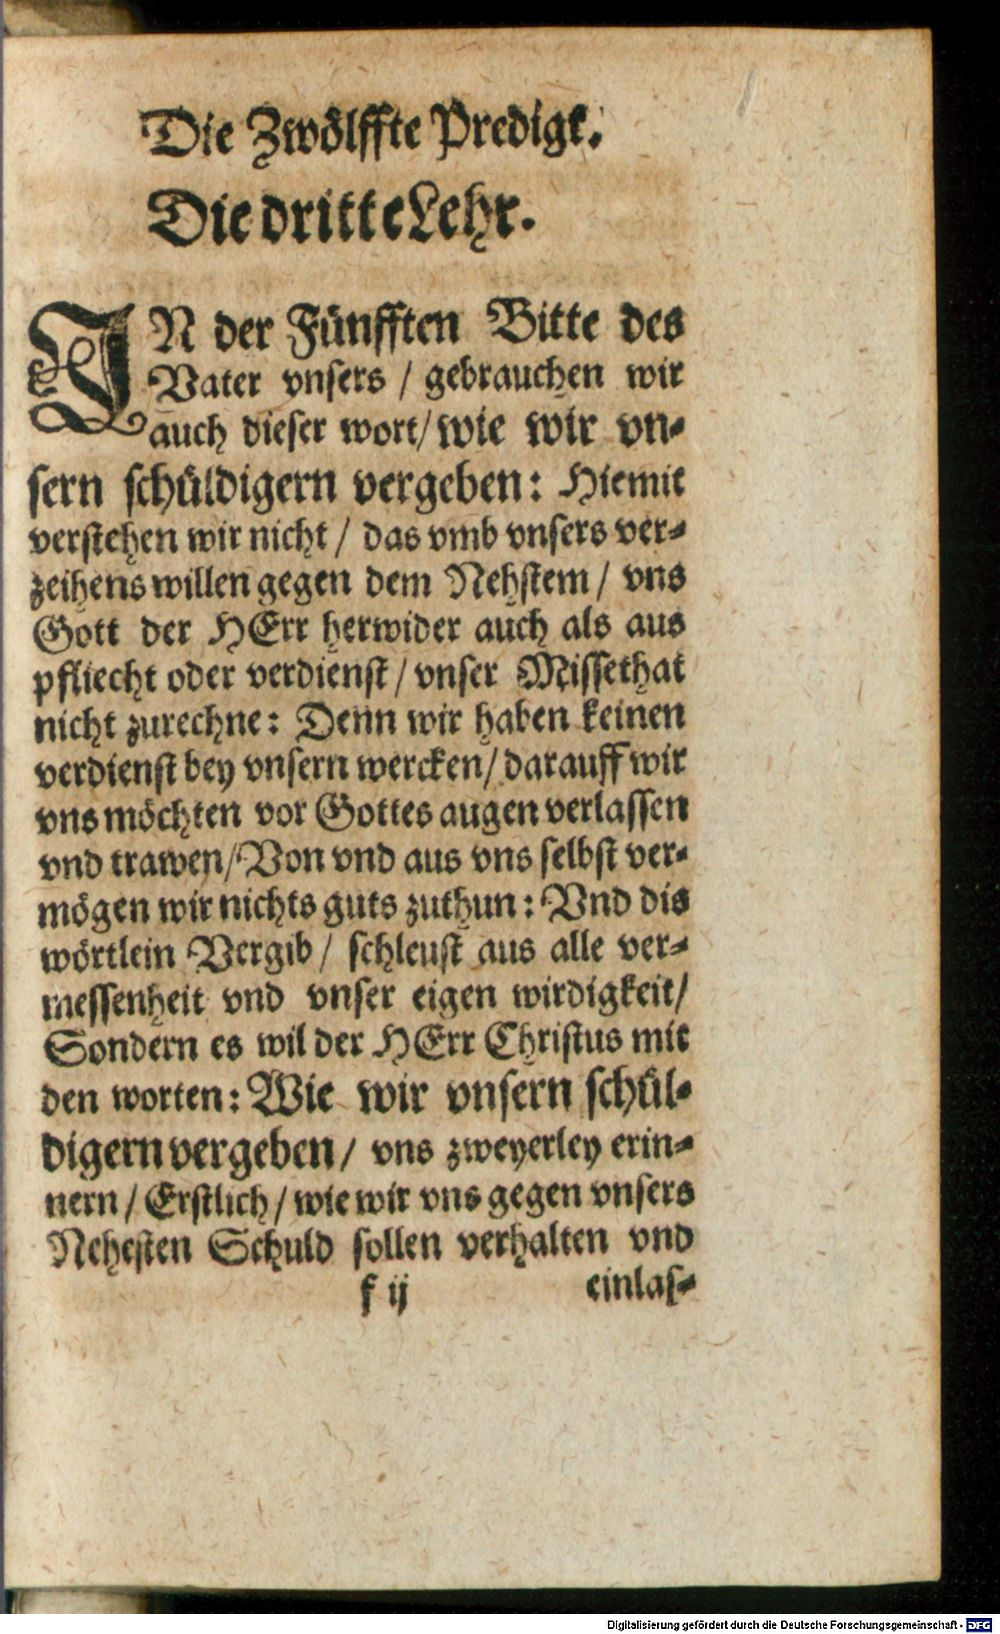 Die Zwölffte Predigt.
Die dritte Lehr.
IN der Fünfften Bitte des
Vater vnsers / gebrauchen wir
auch dieser wort / wie wir vn-
sern schüldigern vergeben: Hiemit
verstehen wir nicht / das vmb vnsers ver-
zeihens willen gegen dem Nehstem / vns
Gott der HErr herwider auch als aus
pfliecht oder verdienst / vnser Missethat
nicht zurechne: Denn wir haben keinen
verdienst bey vnsern wercken / darauff wir
vns möchten vor Gottes augen verlassen
vnd trawen / Von vnd aus vns selbst ver-
mögen wir nichts guts zuthun: Vnd dis
wörtlein Vergib / schleust aus alle ver-
messenheit vnd vnser eigen wirdigkeit /
Sondern es wil der HErr Christus mit
den worten: Wie wir vnsern schül-
digern vergeben / vns zweyerley erin-
nern / Erstlich / wie wir vns gegen vnsers
Nehesten Schuld sollen verhalten vnd
f ij einlas-
Digitalisierung gefördert durch die Deutsche Forschungsgemeinschaft - DFG